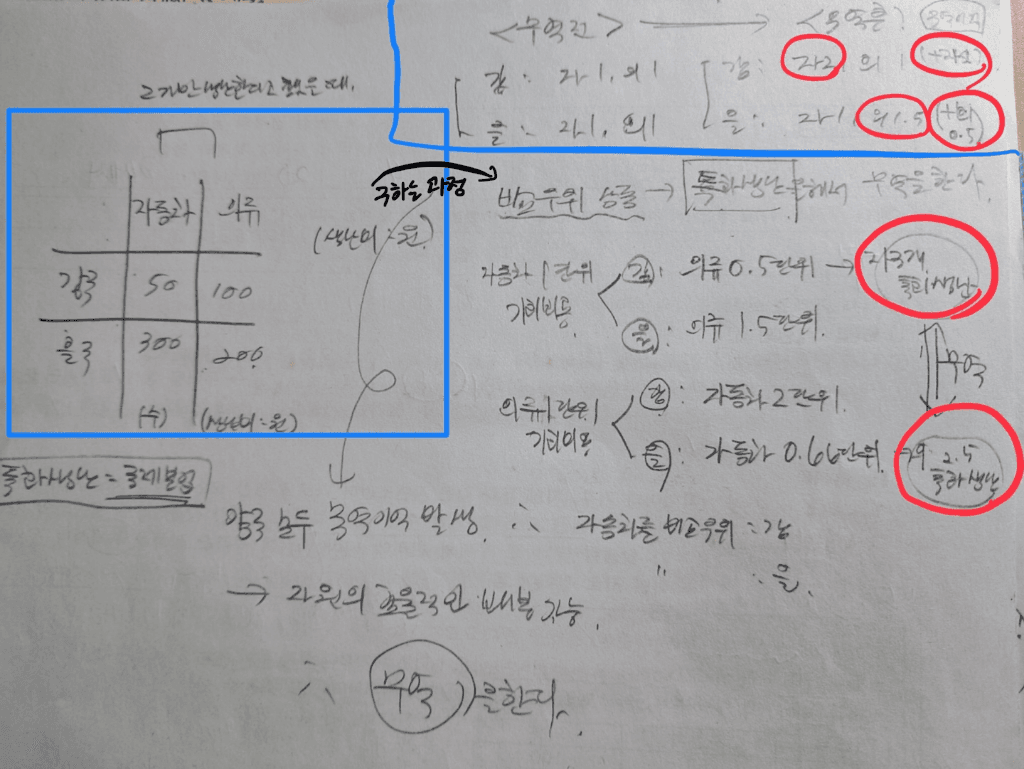 <무역전> → <무역후>
갑: 자1, 의1
을: 자1, 의1
갑: 자2, 의1 (+자1)
을: 자1, 의1.5 (+의 0.5)
2가지만 생산한다고 했을 때,
자동차 의류
(생산비:원)
갑국 50 100
을국 300 200
(수) (생산비:원)
구하는 과정
비교우위 상품 → 특화생산을 해서 무역을 한다.
자동차 1단위 기회비용
갑: 의류 0.5단위 → 자3개 특화생산
을: 의류 1.5단위.
무역
의류 1단위 기회비용
갑: 자동차 2단위.
을: 자동차 0.66단위 → 의 2.5 특화생산
특화생산 = 문제풀이
양국 모두 무역이익 발생. ∴ 자동차를 비교우위 : 갑
" : 을.
→ 자원의 효율적인 배분 가능.
∴ 무역을한다.